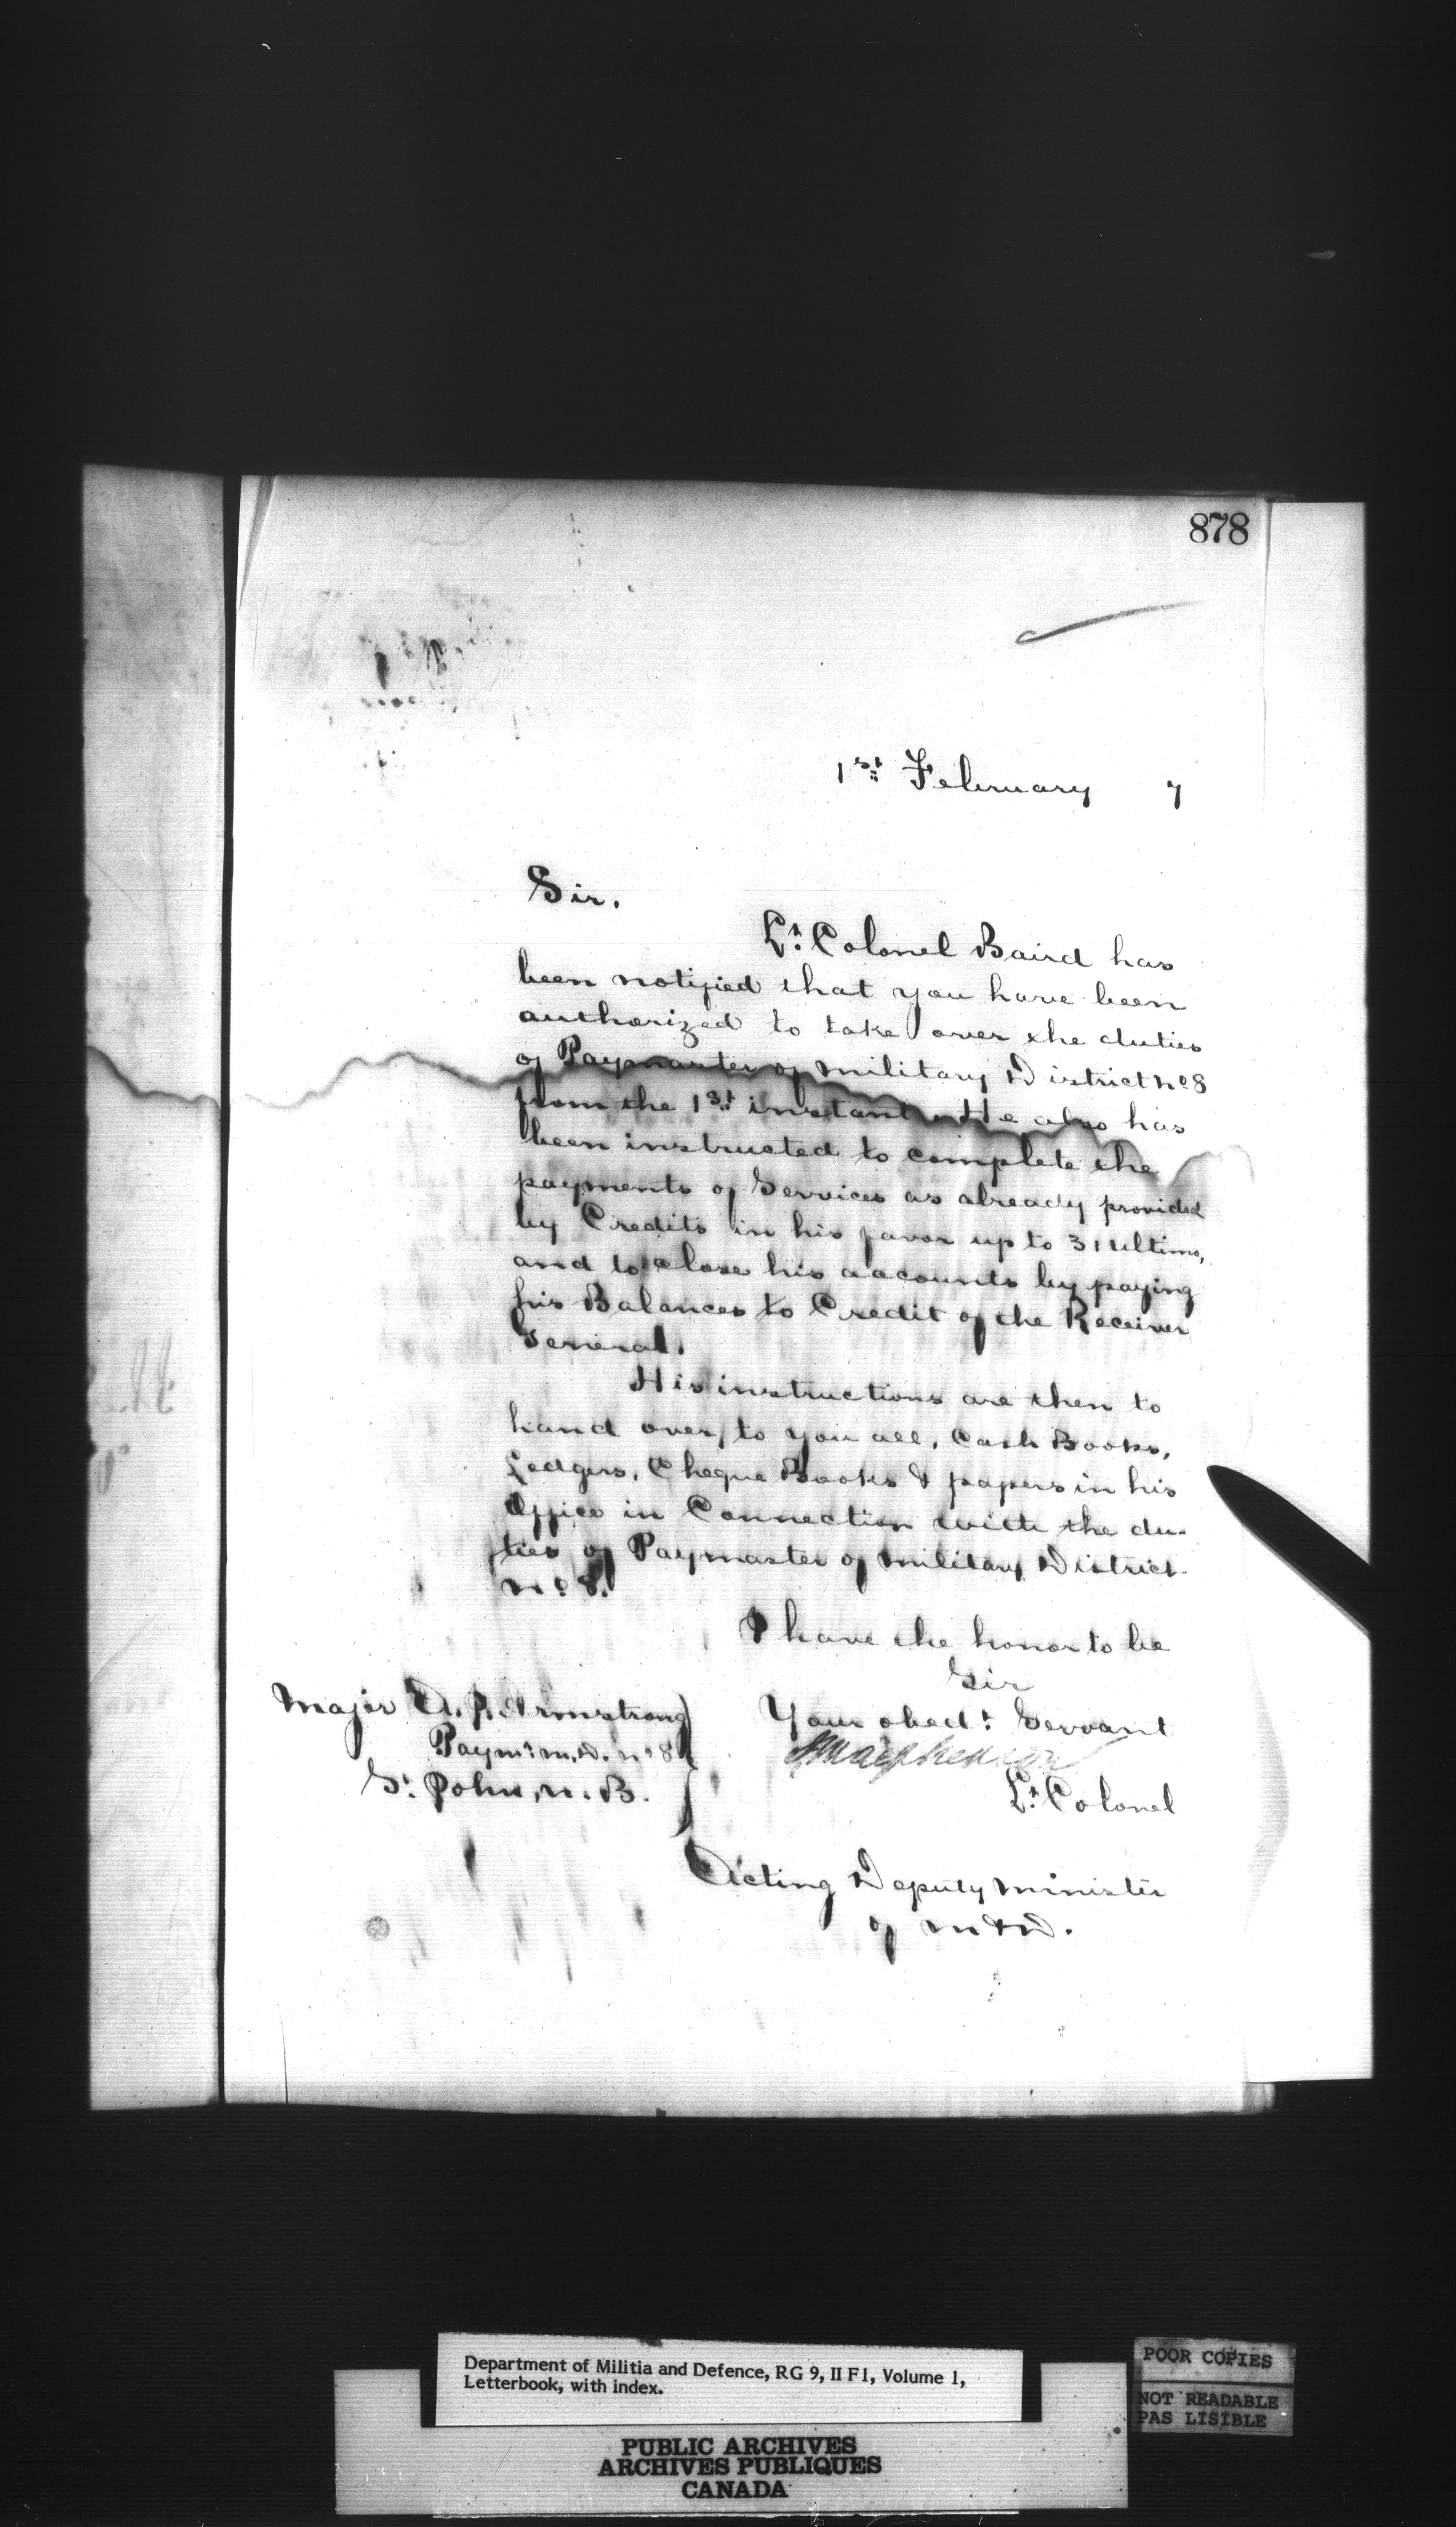 878
1st February 7
Sir.
Lt. Colonel Baird has
been notified that you have been
authorized to take over the duties
of Paymaster of Military District No 8
from the 1st instant. He also has
been instructed to complete the
payments of Services as already provided
by Credits in his favor up to 31 Ultimo,
and to close his accounts by paying
his Balances to Credit of the Receiver
General.
His instructions are then to
hand over, to you all, Cash Books,
Ledgers, Cheque Books & papers in his
Office in Connection with the du-
ties of Paymaster of Military District
No 8.
I have the honor to be
Sir
Your obedt. Servant
Macpherson
Lt. Colonel
Acting Deputy Minister
of M & D.
Major A. J. Armstrong
Paymr. M. D. No 8
St. John, N. B.
Department of Militia and Defence, RG 9, II F1, Volume 1,
Letterbook, with index.
PUBLIC ARCHIVES
ARCHIVES PUBLIQUES
CANADA
POOR COPIES
NOT READABLE
PAS LISIBLE